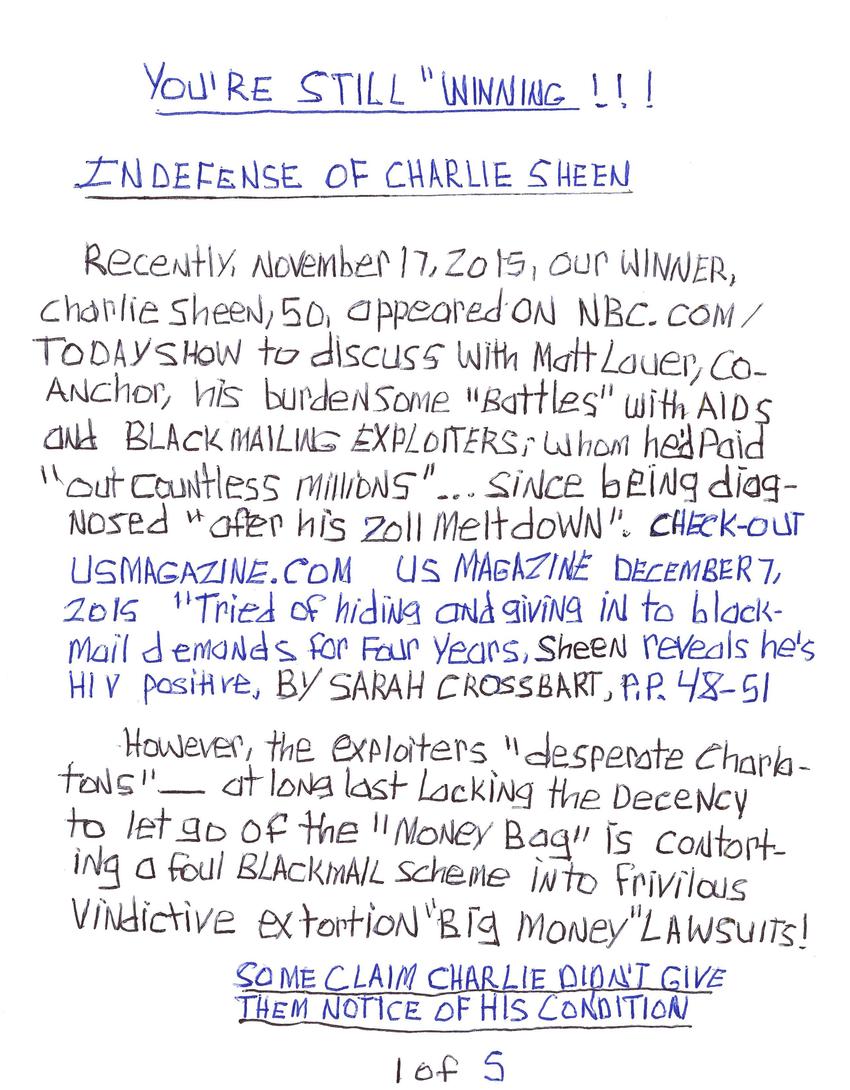 YOU'RE STILL "WINNING !!!
IN DEFENSE OF CHARLIE SHEEN
Recently, November 17, 2015, our WINNER,
Charlie Sheen, 50, appeared ON NBC.COM/
TODAY SHOW to discuss with Matt Lauer, Co-
ANchor, his burdeNsome "Battles" with AIDS
and BLACKMAILING EXPLOITERS; whom he'd Paid
"out countless millions"... since being diag-
Nosed "after his 2011 MeltdowN". CHECK-OUT
USMAGAZINE.COM US MAGAZINE DECEMBER 7,
2015 "Tried of hiding and giving in to black-
Mail demands for Four years, Sheen reveals he's
HIV positive, BY SARAH CROSSBART, P.P. 48-51
However, the exploiters "desperate Charla-
tans"— at long last Lacking the Decency
to let go of the "Money Bag" is contort-
ing a foul BLACKMAIL scheme into frivilous
Vindictive extortion "Big Money" LAWSUITS!
SOME CLAIM CHARLIE DIDN'T GIVE
THEM NOTICE OF HIS CONDITION
1 of 5